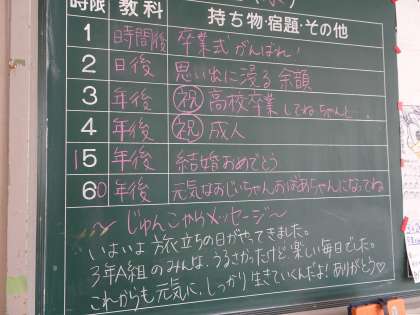 時限 教科 持ち物・宿題・その他
1 時間後 卒業式がんばれ!
2 日後 思い出に浸る余韻
3 年後 祝 高校卒業してねちゃんと…
4 年後 祝 成人
15 年後 結婚おめでとう
60 年後 元気なおじいちゃんおばあちゃんになってね
～じゅんこからメッセージ～
いよいよ旅立ちの日がやってきました。
3年A組のみんな、うるさかったけど、楽しい毎日でした。
これからも元気に、しっかり生きていくんだよ!ありがとう♡